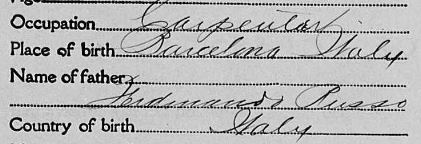 Occupation Carpenter
Place of birth Barcelino Italy
Name of father
Ferdinando Russo
Country of birth Italy